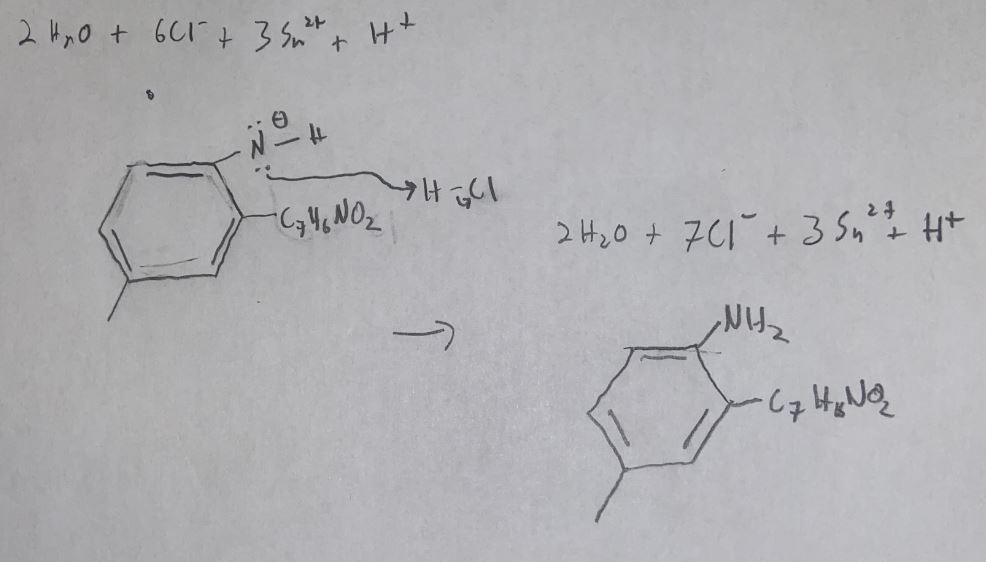 2 H₂O + 6Cl⁻ + 3 Sn²⁺ + H⁺
N̈ ⊖ — H
H - Cl
C₇H₆NO₂
2 H₂O + 7Cl⁻ + 3 Sn²⁺ + H⁺
→
NH₂
C₇H₆NO₂